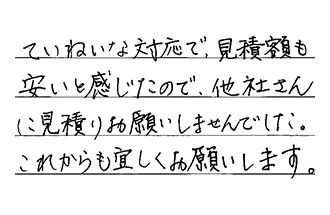 ていねいな対応で、見積額も
安いと感じたので、他社さん
に見積りお願いしませんでした。
これからも宜しくお願いします。